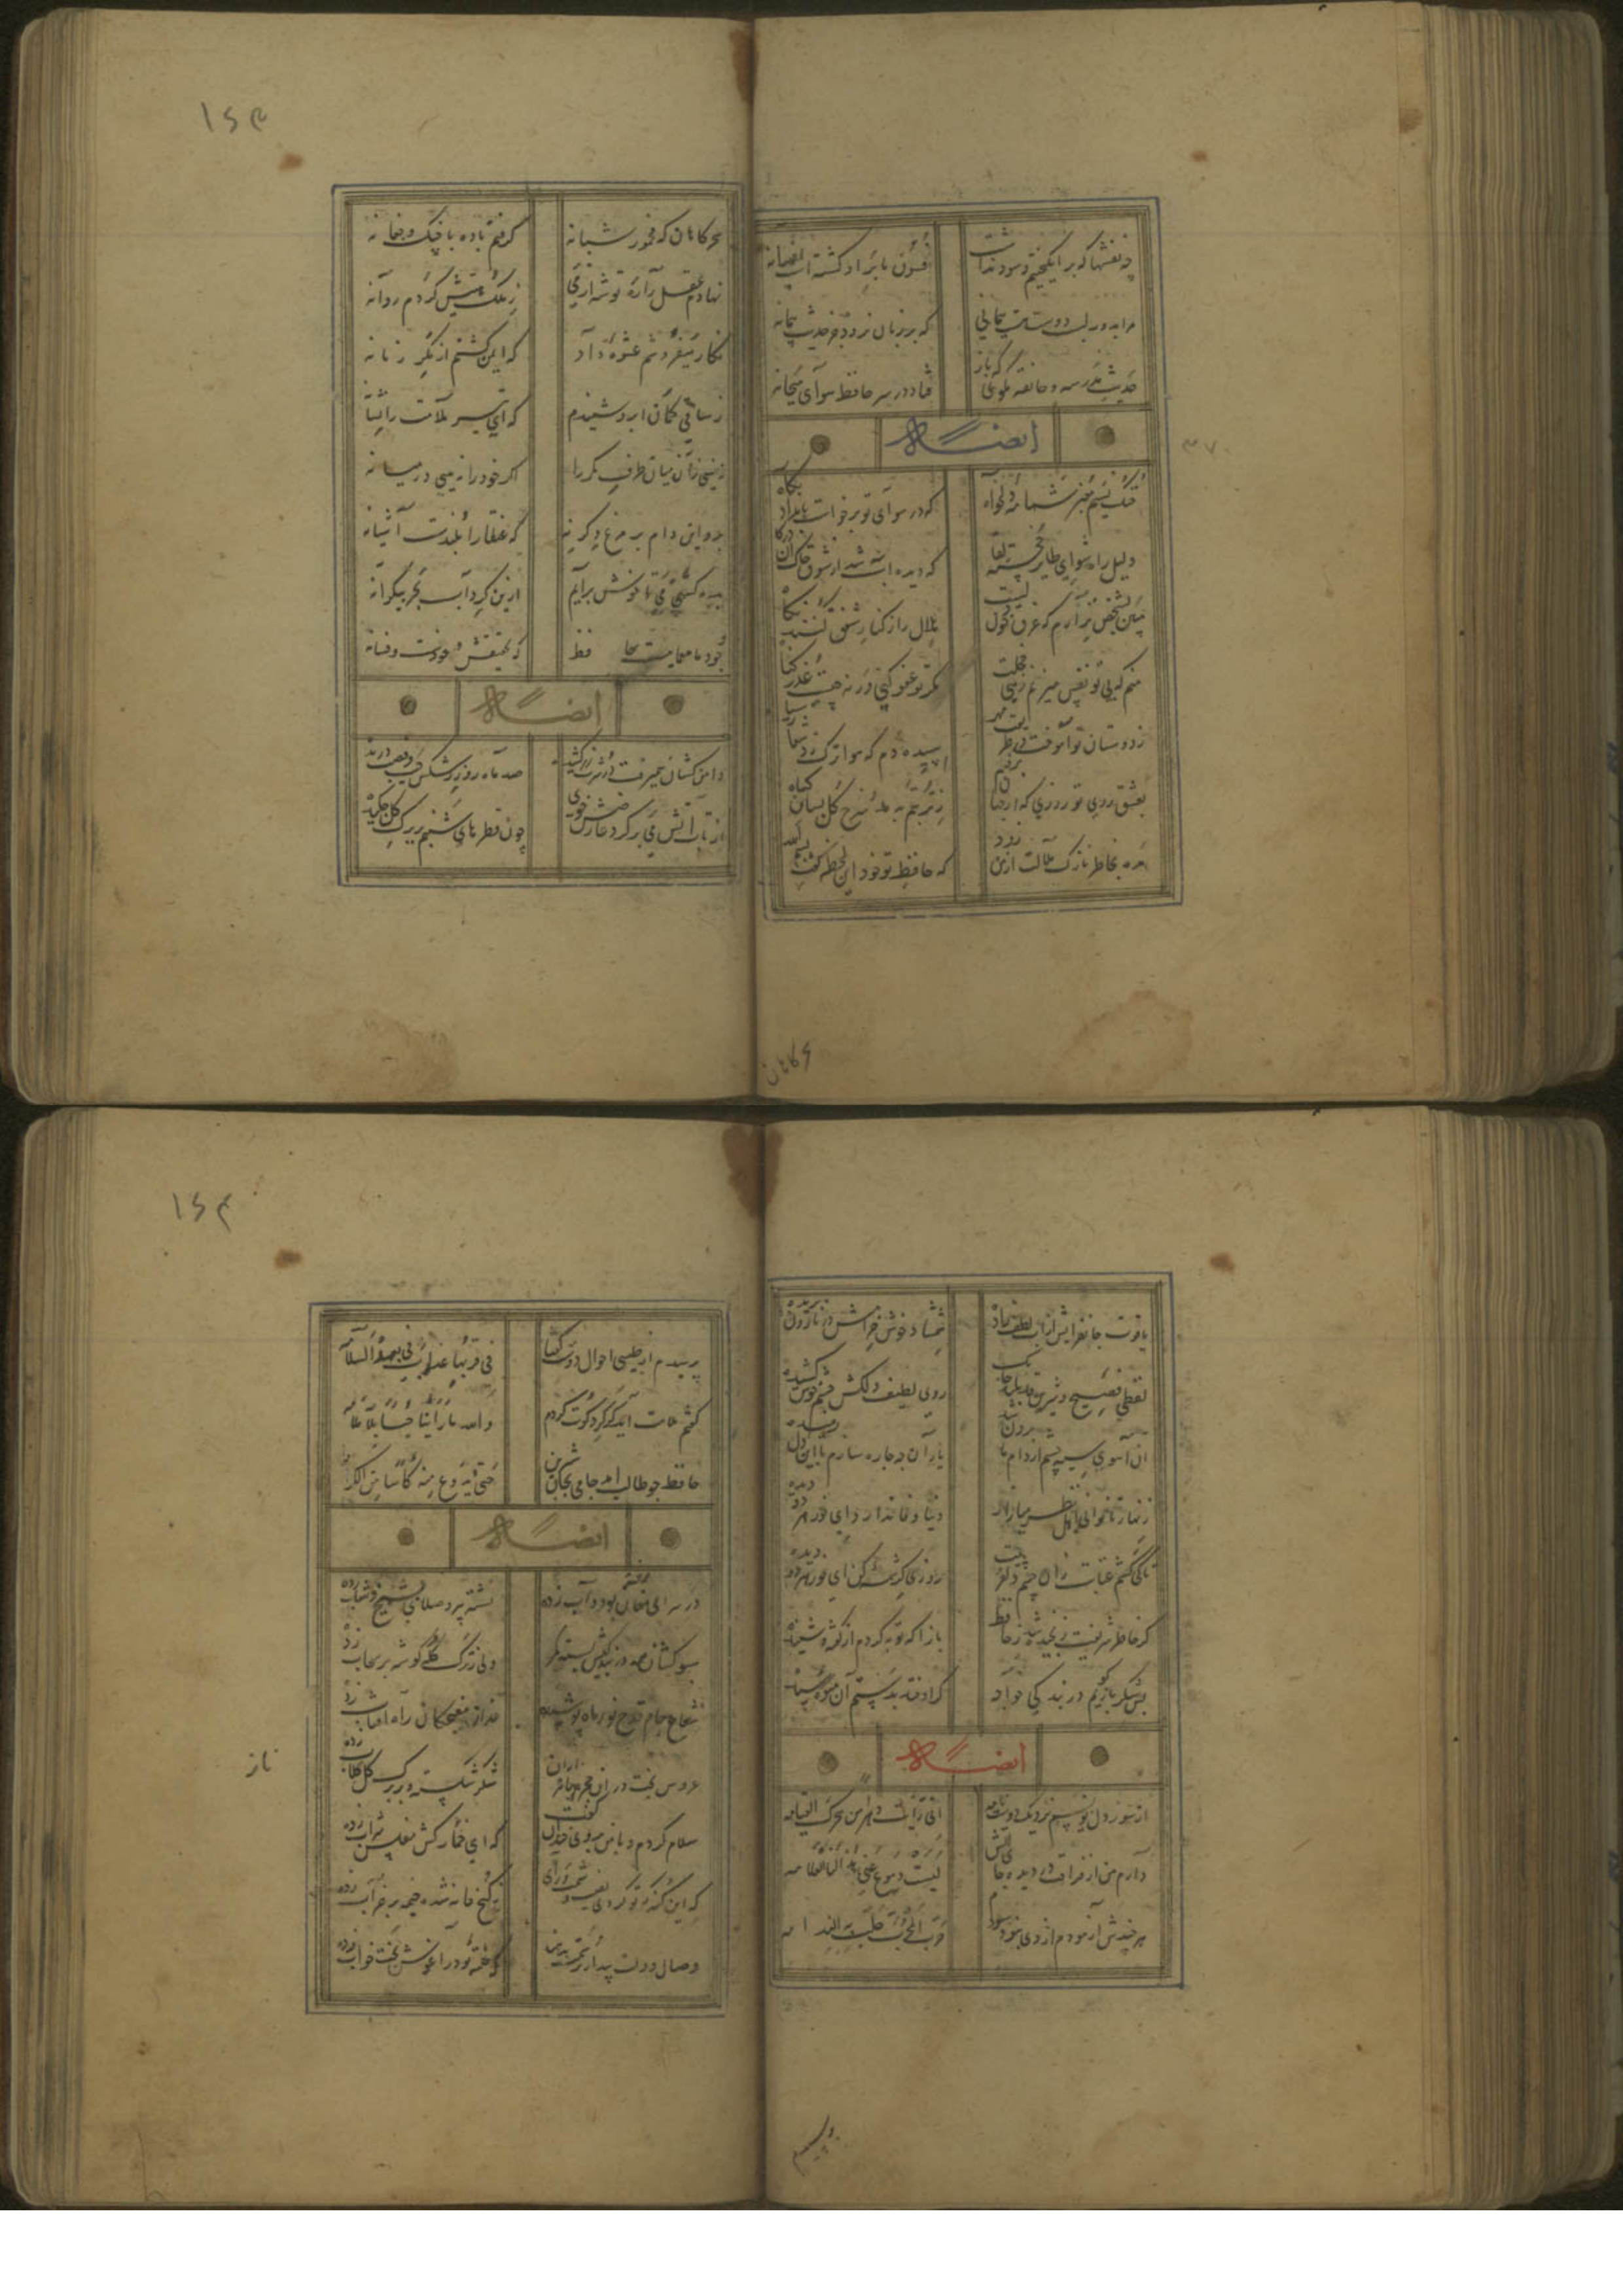 چه نقشها که برانگیختیم و سود نداشت
فسون ما بر او گشته است افسانه
مرا بدور لب دوست هست پیمانی
که بر زبان نرود جز حدیث پیمانه
حدیث مدرسه و خانقه مگوی که باز
فتاد در سر حافظ هوای میخانه
ایضاً له
۳۷۰
خنک نسیم معنبر شمامه دلخواه
که در هوای تو برخواست بامداد پگاه
دلیل راه شو ای طایر خجسته لقا
که دیده آب شد از شوق خاک آن درگاه
ببین شخص نزارم که غرق خون دلست
هلال را ز کنار شفق کنند نگاه
منم که بی تو نفس میزنم زهی خجلت
مگر تو عفو کنی ورنه چیست عذر گناه
ز دوستان تو آموخت در طریقت مهر
سپیده دم که هوا چاک زد شعار سیاه
بعشق روی تو روزی که از جهان بروم
ز تربتم بدمد سرخ گل بسان گیاه
مده بخاطر نازک ملالت از من زود
که حافظ تو خود این لحظه گفت بسم الله
سحرکاهان
۱۶۳
سحرکاهان که مخمور شبانه
گرفتم باده با چنگ و چغانه
نهادم عقل را ره توشه از می
ز ملک هستیش کردم روانه
نگار میفروشم عشوه داد
که ایمن گشتم از مکر زمانه
ز ساقی کمان ابرو شنیدم
که ای تیر ملامت را نشانه
نبینی زان میان طرفی کمروا
اگر خود را نه بینی در میانه
برو این دام بر مرغ دگر نه
که عنقا را بلندست آشیانه
بده کشتی می تا خوش برآیم
ازین گرداب بحر بیکرانه
وجود ما معمائیست حافظ
که تحقیقش فسونست و فسانه
ایضاً له
دامن کشان همی رفت در شرب زرکشیده
صد ماه رو ز رشکش جیب قصب دریده
از تاب آتش می بر گرد عارضش خوی
چون قطرهای شبنم بر برگ گل چکیده
یاقوت جانفزایش از آب لطف زاده
شمشاد خوش خرامش در ناز پروریده
لفظی فصیح و شیرین قدی بلند و چابک
روی لطیف و دلکش چشم خوش کشیده
آن آهوی سیه چشم از دام ما برون شد
یاران چه چاره سازم با این دل رمیده
زنهار تا توانی اهل نظر میازار
دنیا وفا ندارد ای نور هر دو دیده
تا کی کشم عتابت زان چشم دلفریبت
روزی کرشمه کن ای نور هر دو دیده
گر خاطر شریفت رنجیده شد ز حافظ
باز آ که توبه کردم از گفته و شنیده
بس شکر باز گویم در بندگی خواجه
گر اوفتد بدستم آن میوه رسیده
ایضاً له
از سوز دل نویسم نزدیک دوست نامه
انی رایت دهرا من هجرک القیامه
دارم من از فراقت در دیده صد علامت
لیست دموع عینی هذا لنا العلامه
هر چندش آزمودم از وی نبود سودم
من جرب المجرب حلت به الندامه
پرسیدم
۱۶۴
پرسیدم از طبیبی احوال دوست گفتا
فی قربها عذاب فی بعدها السلامه
گفتم ملامت آید گر گرد کوت گردم
والله ما راینا حبا بلا ملامه
حافظ چو طالب آمد جامی بجان شیرین
حتی یذوق منه کاسا من الکرامه
ایضاً له
در سرای مغان رفته بود و آب زده
نشسته پیر و صلایی بشیخ و شاب زده
سبو کشان همه در بندگیش بسته کمر
ولی ز ترک کله گوشه بر سحاب زده
شعاع جام قدح نور ماه پوشیده
عذار مغبچگان راه آفتاب زده
عروس بخت در آن حجره با هزاران ناز
شکر شکسته و بر برگ گل گلاب زده
سلام کردم و با من بروی خندان گفت
که ای خمارکش مفلس شراب زده
که این کند که تو کردی بضعف همت و رای
ز گنج خانه شده خیمه بر خراب زده
وصال دولت بیدار ترسمت ندهند
که خفته تو در آغوش بخت خواب زده